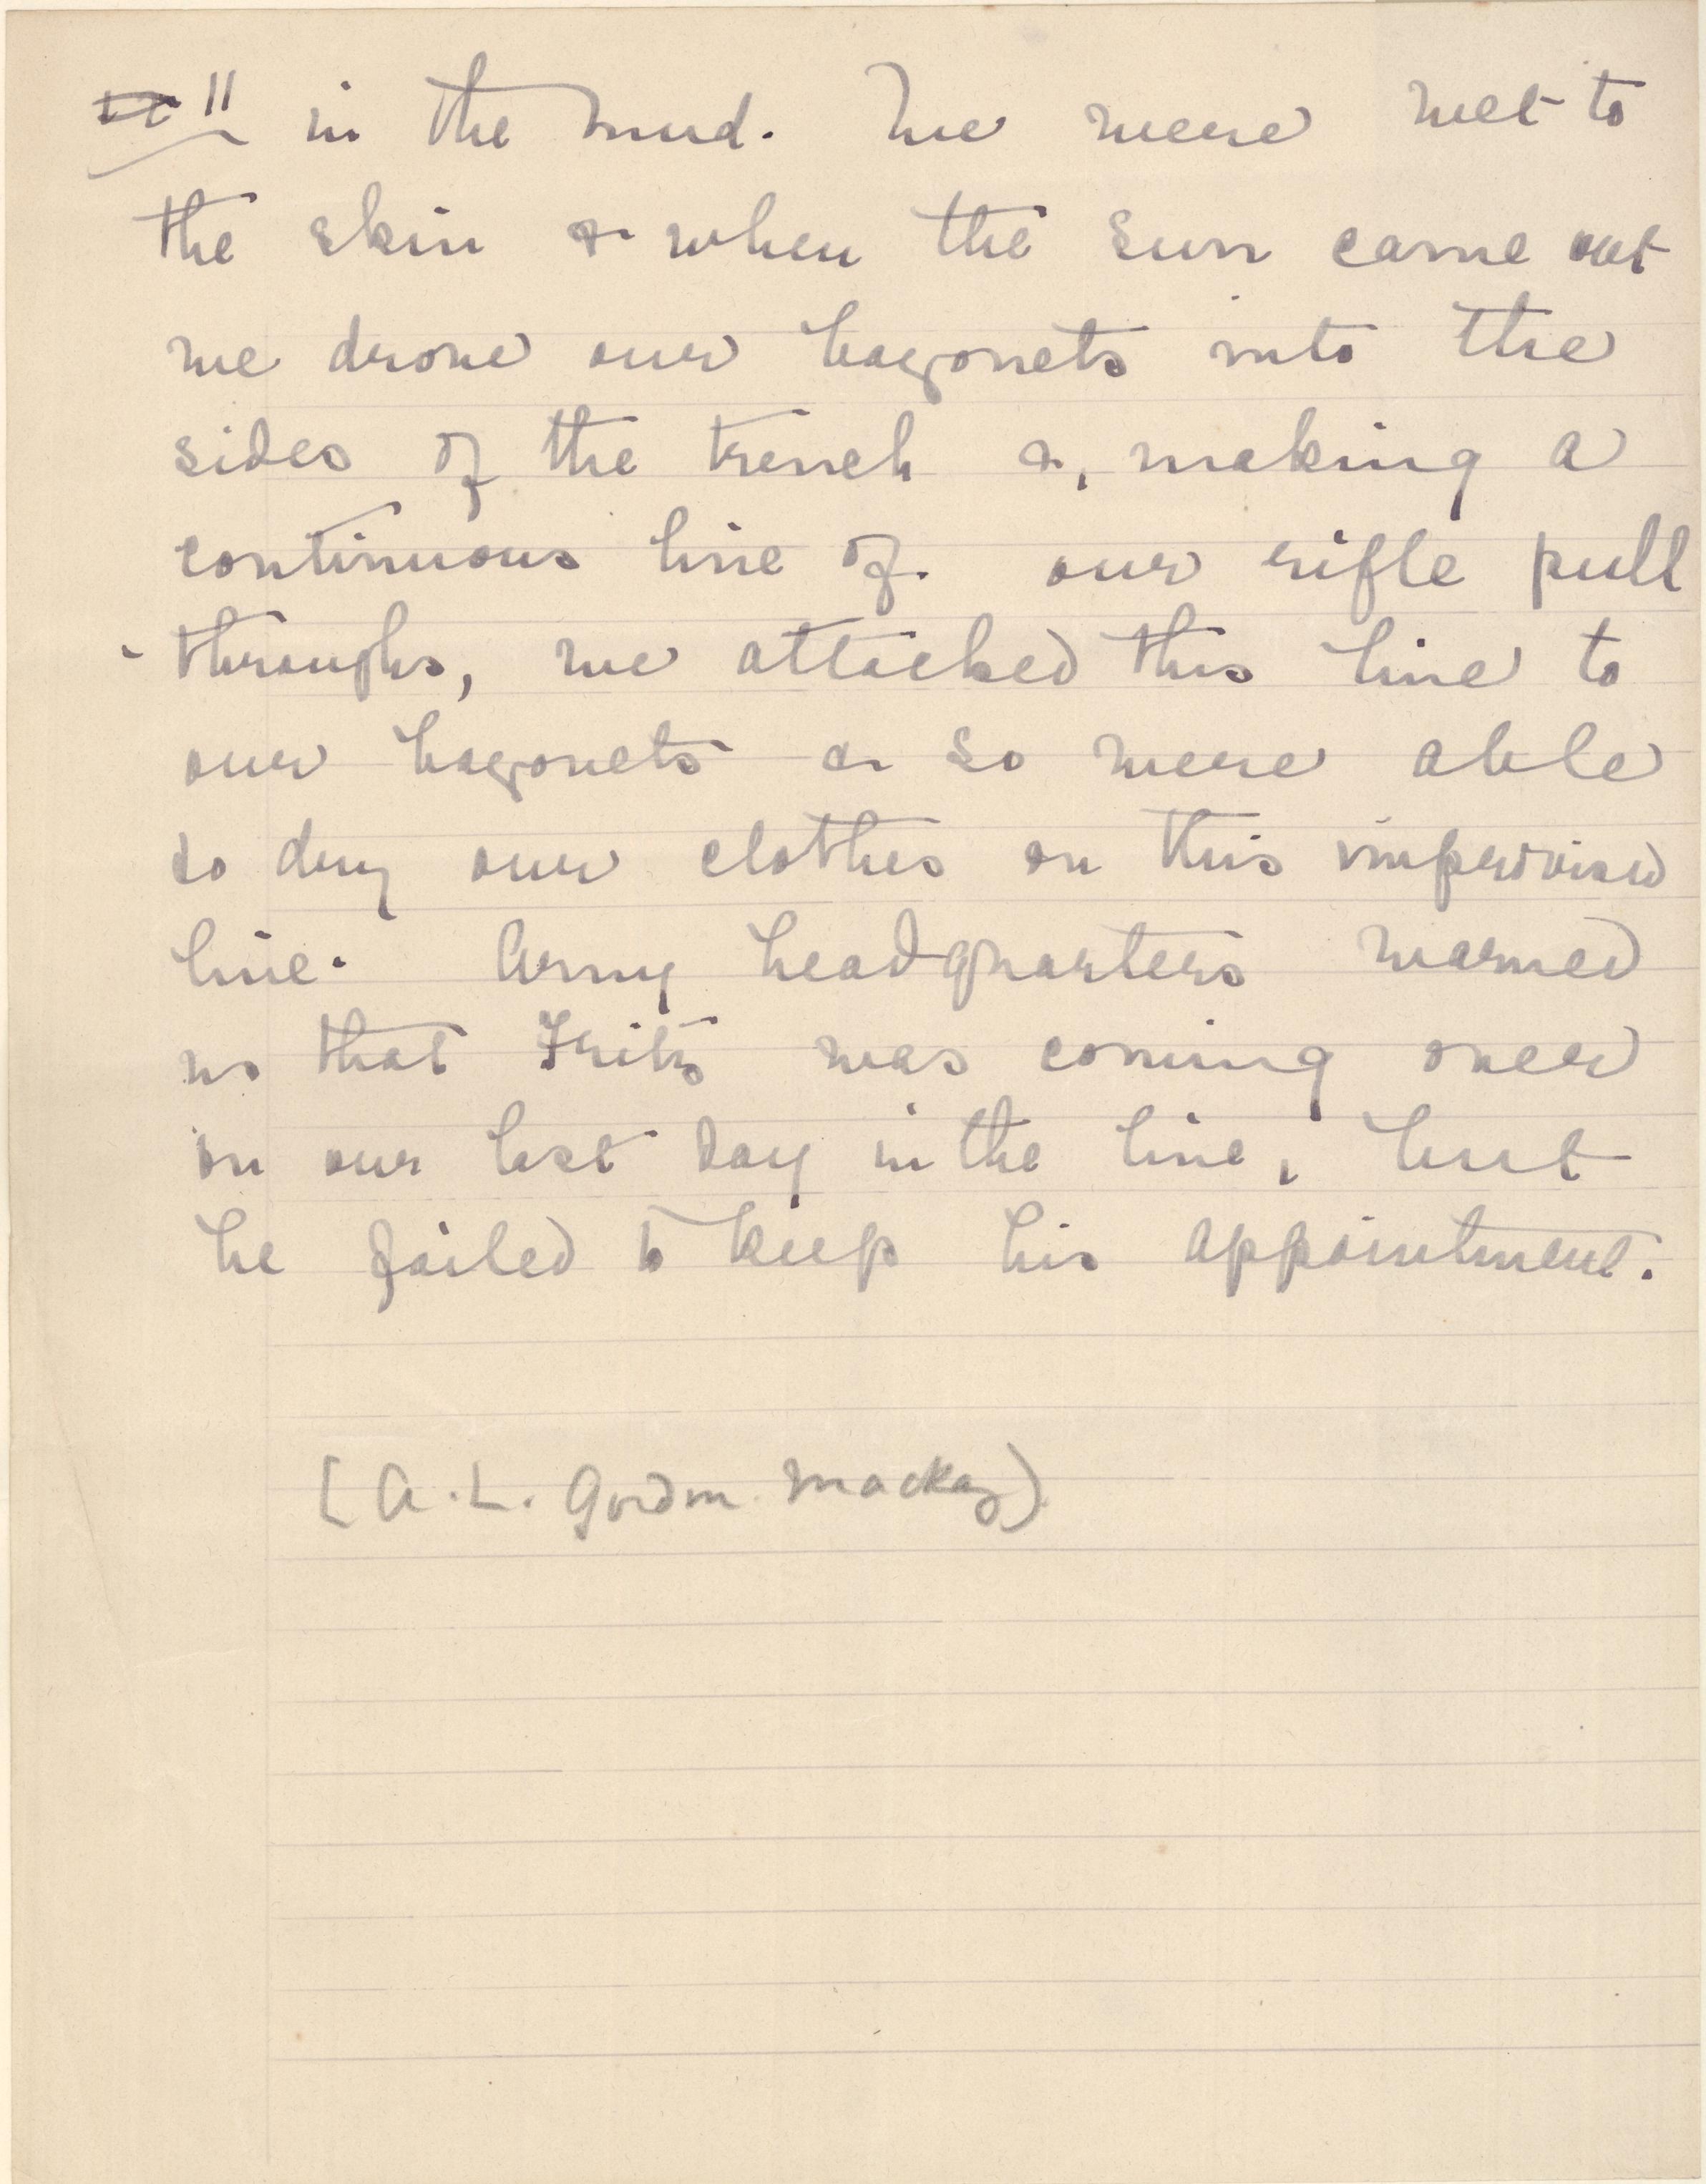 11 in the mud. We were wet to
the skin & when the sun came out
we drove our bayonets into the
sides of the trench &, making a
continuous line of our rifle pull
-throughs, we attached this line to
our bayonets & so were able
to dry our clothes on this improvised
line. Army headquarters warned
us that Fritz was coming over
on our last day in the line, but
he failed to keep his appointment.
(A.L. Gordon Mackay)